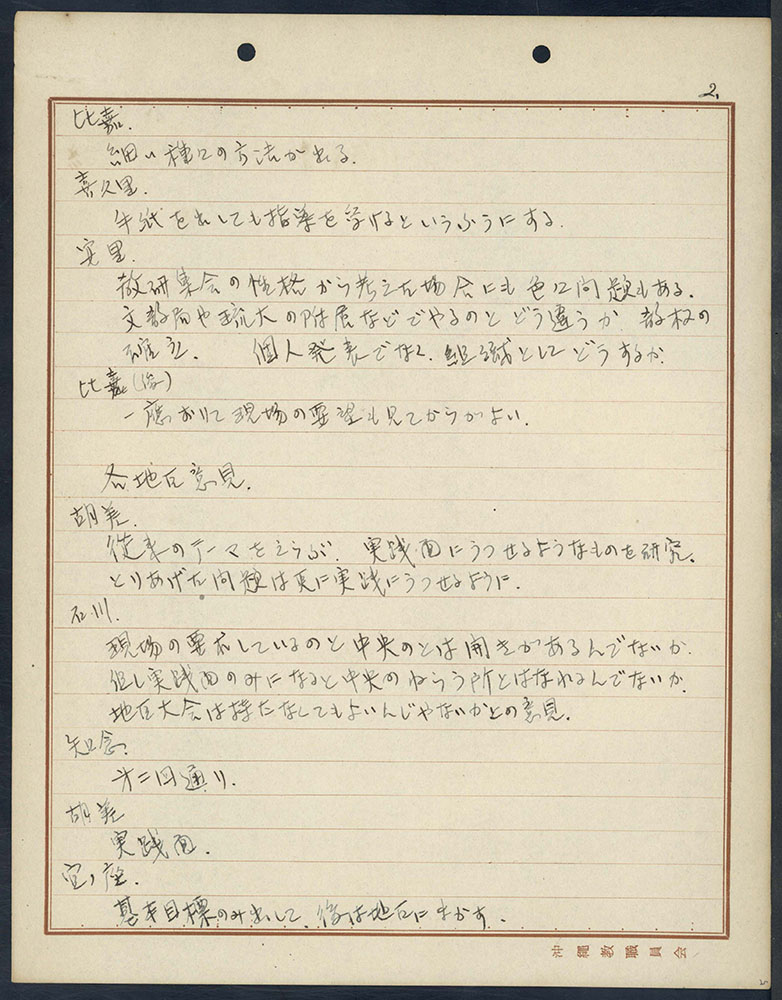 2.
比嘉.
細い種々の方法が出る.
喜久里.
手紙を出しても指導を受けるというふうにする.
実里.
教研集会の性格から考えた場合にも色々問題もある.
文教局や琉大の附属などでやるのとどう違うか 教权の
確立. 個人発表でなく、組織としてどうするか.
比嘉(俊)
一應おりて現場の要望も見てからがよい.
各地区意見.
胡差.
従来のテーマをえらぶ. 実践面にうつせるようなものを研究.
とりあげた問題は更に実践にうつせるように.
石川.
現場の要求しているのと中央のとは開きがあるんでないか.
但し実践面のみになると中央のねらう所とはなれるんでないか.
地区大会は持たなくてもよいんじゃないかとの意見.
知念.
才二回通り.
胡差
実践面.
宜ノ座.
基本目標のみ出して、後は地区にまかす.
沖縄教職員会